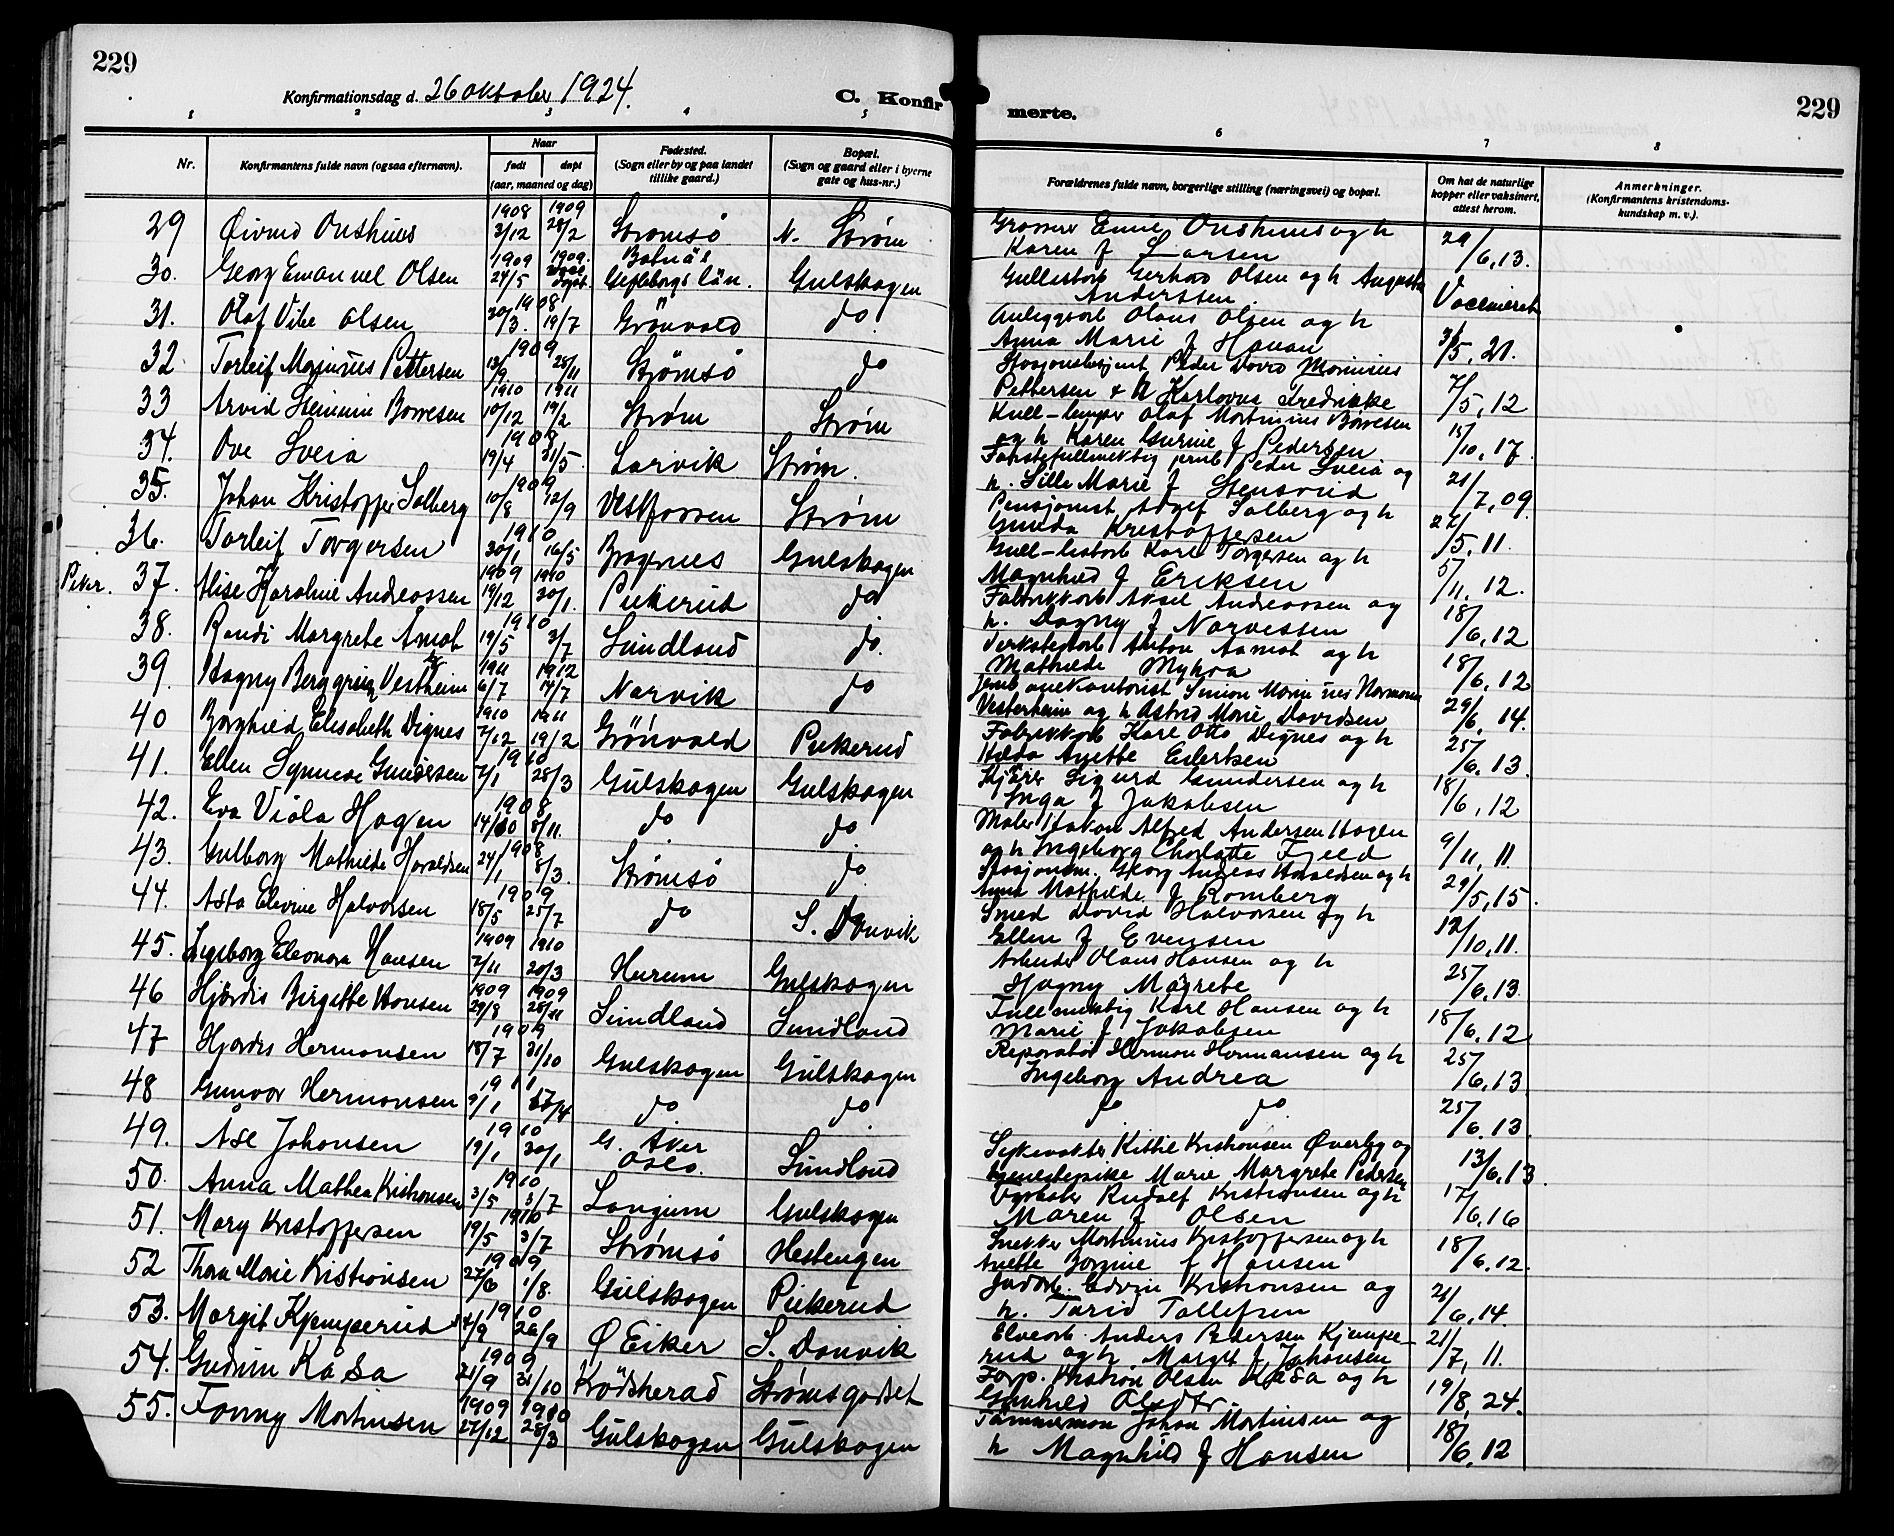 229
Konfirmationsdag d. 26 oktober 1924.
C. Konfir
merte.
229
1 2 3 4 5 6 7 8
Nr.
Konfirmantens fulde navn (ogsaa efternavn).
Naar
født
døpt
(aar, maaned og dag)
Fødested.
(Sogn eller by og paa landet
tillike gaard.)
Bopæl.
(Sogn og gaard eller i byerne
gate og hus-nr.)
Forældrenes fulde navn, borgerlige stilling (næringsvei) og bopæl.
Om hat de naturlige
kopper eller vaksinert,
attest herom.
Anmerkninger.
(Konfirmantens kristendoms-
kundskap m. v.).
29 Øivind Onshuus 1908 3/12 1909 28/2 Strømsø N. Strøm
Emil Onshuus og h
Karen f Larsen 29/6,13.
30. Georg Emanuel Olsen 1909 24/5 1909. Gefleborgs län. Gulskogen
Gerhard Olsen og h Augusta
Anderssen Vaccineret
31. Olaf Vibe Olsen 1908 20/3. 19/7 Grönvold do
Olaus Olsen og h
Anna Marie f 31/5, 21.
32 Torleif Marinius Pettersen 1909 12/9 28/11 Strømsø do
Peder David Marinius
Pettersen & h Karlovna Fredrikke 7/5, 12
33 Arvid Borresen 1910 10/12 1911 19/2 Strøm Strøm
Olaf Martinius Börresen
og h Karen Gurine f Pedersen 15/10, 17.
34. Ove Sveia 1908 19/4 31/5. Larvik Strøm.
Peder Sveia og
h. Lilla Marie f Stensrud 21/7, 09.
35. Johan Kristoffer Solberg 1909 10/8 12/9 Vestfossen Strøm
Pensjonist Adolf Solberg og h
Gunda Kristoffersen 27/5, 11.
36. Torleif Torgersen 1910 30/1 16/5 Bragernes Gulskogen
Karl Torgersen og h
Magnhild f Eriksen 5/11, 12.
Piker. 37. Alise Karoline Andreassen 1909 19/12 1910 30/1. Pukerud do
Fabrikkarb Aksel Andreassen og
h. Dagny f Narvessen 18/6, 12
38. Randi Margrete Åmot 1910 19/5 3/7 Sundland do.
Verkstedarb Anton Aamot og h
Mathilde Mykra 18/6, 12
39. Hagny Berggrein Vestheim 1911 6/7 1912 14/7 Narvik do
Simon Marinius Normann
Vesterheim og h Astrid Marie Davidsen 29/6, 14.
40 Borghild Elisabeth Dignes 1910 7/12 1911 19/2 Grönvold Pukerud
Fabrikkarb Karl Otto Dignes og h
Hulda Anette Eilertsen 25/6, 13.
41. Ellen Synnøve Gundersen 1910 7/1 28/3 Gulskogen Gulskogen
Kjörer Sigurd Gundersen og h
Inga f Jakobsen 18/6, 12
42. Eva Viola Hagen 1908 14/10 8/11. do do
Maler Hakon Alfred Andersen Hagen
og h Ingeborg Charlotte Fjeld 9/11, 11
43. Gulborg Mathilde Haraldsen 1908 24/1 8/3. Strømsø do.
Georg Andreas Haraldsen og h
Anna Mathilde f Romberg 29/5, 15.
44. Asta Elevine Halvorsen 1909 18/5 25/7 do S. Danvik
Smed David Halvorsen og h
Ellen f Evensen 12/10, 11.
45. Ingeborg Eleonora Hansen 1909 2/11 1910 20/3 Hurum Gulskogen
Arbeider Olaus Hansen og h
Hagny Magrete 25/6, 13.
46 Hjørdis Birgitte Hansen 1909 29/8 1909 28/11 Sundland Sundland
Fullmektig Karl Hansen og h
Marie f Jakobsen 18/6, 12
47 Hjørdis Hermansen 1909 18/7 31/10 Gulskogen Gulskogen
Reparatør Herman Hermansen og h
Ingeborg Andrea 25/6, 13
48 Gunvor Hermansen 1911 9/1 do do
do do 25/6, 13.
49. Åse Johansen 1910 19/1 30/1 G. Aker Oslo. Sundland
Kittil Kristiansen Øverby og
Marie Margrete Pedersen 13/6, 13.
50. Anna Mathea Kristiansen 1910 3/5 3/7 Langum Gulskogen
Rudolf Kristiansen og h
Maren f Olsen 17/6, 16
51. Mary Kristoffersen 1910 19/5 3/7 Strømsø Hestengen
Snekker Martinius Kristoffersen og h
Anette Borgine f Hansen 18/6, 12.
52 Thora Marie Kristiansen 1909 27/6 1/8. Gulskogen Pukerud
Edvin Kristiansen og
h. Turid Tollefsen 21/6, 14.
53. Margit Kjemperud 1910 4/9 26/9 Ø Eiker S. Danvik
Elvearb. Anders Pedersen Kjempe-
rud og h. Margit f Johansen 21/7, 11.
54. Gudrun Kåsa 1909 21/9 31/10 Krödsherad Strømsgodset
Forp. Kristian Olsen Kåsa og h
Gunhild Olsdtr. 19/8, 24.
55. Fanny Martinsen 1909 27/12 1910 28/3 Gulskogen Gulskogen
Tömmerman Johan Martinsen og
h Magnhild f Hansen 18/6, 12